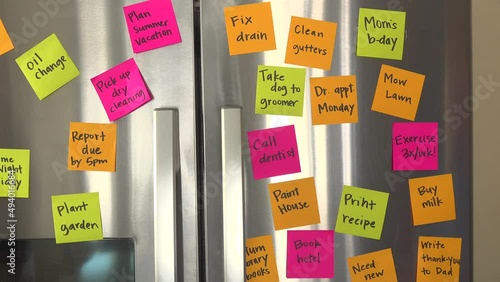 Oil change
Plan
Summer
vacation
Pick up
dry
cleaning
Report
due
by 5pm
me
Night
Plant
garden
Fix
drain
Clean
gutters
Mom's
b-day
Take
dog to
groomer
Dr. appt.
Monday
Mow
Lawn
Call
dentist
Exercise
3x/wk!
Paint
House
Print
recipe
Buy
milk
books
Book
hotel
Need new
Write
thank-you
to Dad